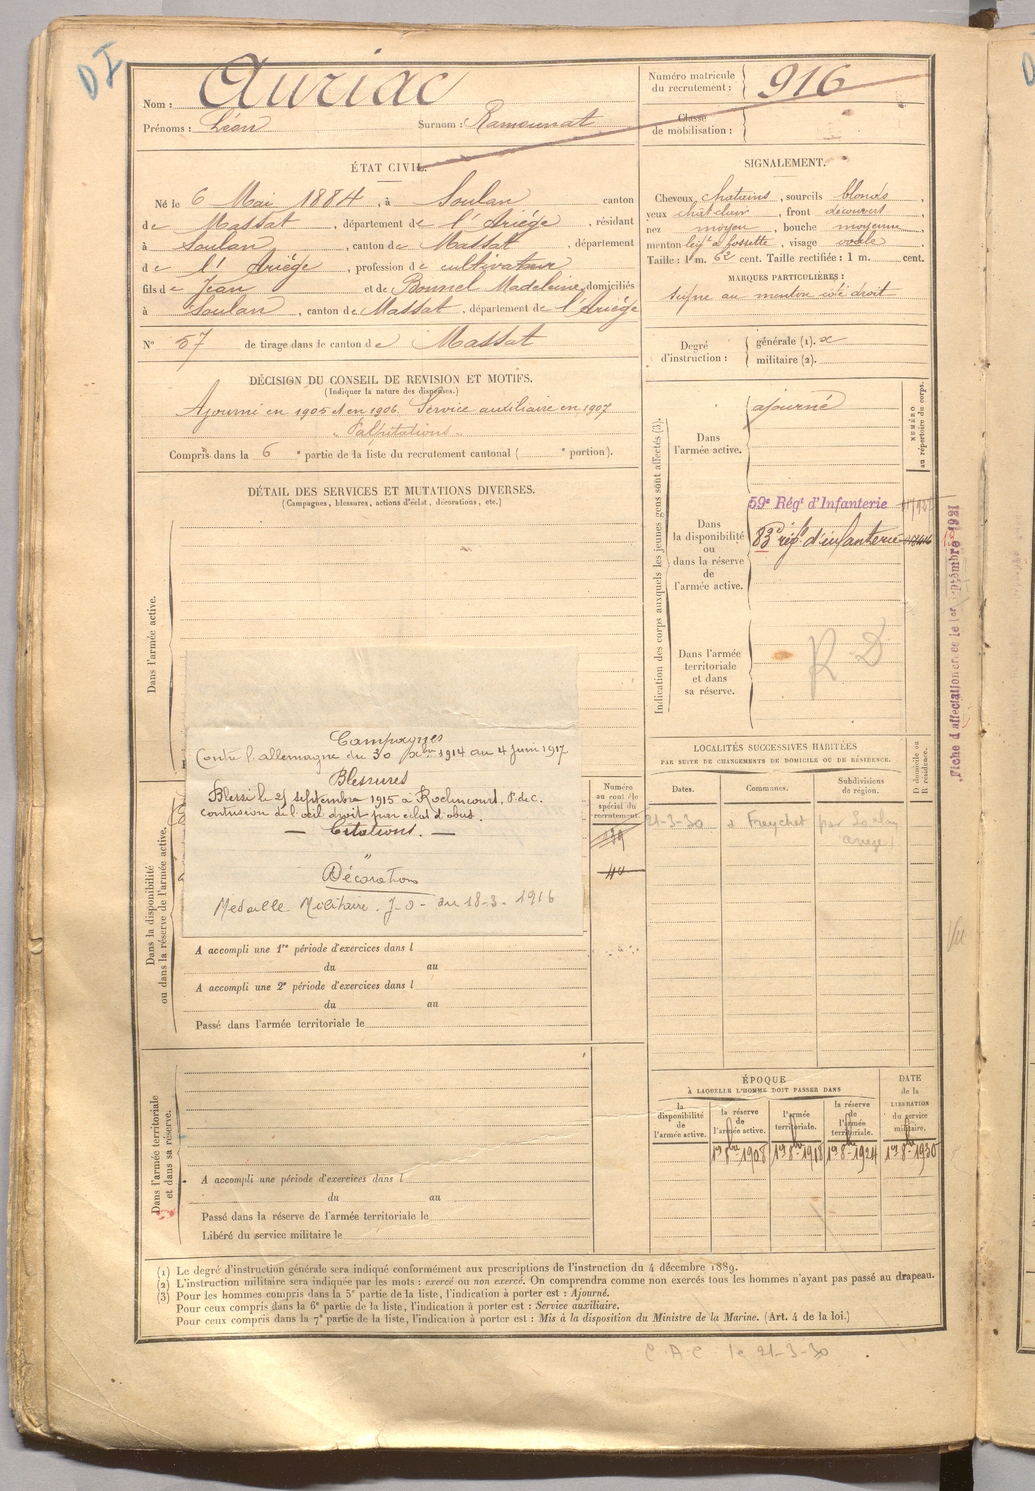 DI
Nom : Auriac
Prénoms : Léon Surnom : Ramounat
Numéro matricule du recrutement : 916
Classe de mobilisation :
ÉTAT CIVIL.
Né le 6 Mai 1884, à Soulan canton
de Massat, département de l'Ariége, résidant
à Soulan, canton de Massat, département
de l'Ariége, profession de cultivateur
fils de Jean et de Bonnel Madeleine, domiciliés
à Soulan, canton de Massat, département de l'Ariége
N° 57 de tirage dans le canton de Massat
SIGNALEMENT.
Cheveux chatains, sourcils blonds,
yeux chat clair, front découvert,
nez moyen, bouche moyenne,
menton à fossette, visage ovale
Taille : 1 m. 62 cent. Taille rectifiée : 1 m. cent.
MARQUES PARTICULIÈRES :
signe au menton côté droit
Degré d'instruction : générale (1). militaire (2).
DÉCISION DU CONSEIL DE REVISION ET MOTIFS.
(Indiquer la nature des dispenses.)
Ajourné en 1905 et en 1906. Service auxiliaire en 1907
"Palpitations"
Compris dans la 6e partie de la liste du recrutement cantonal ( e portion).
DÉTAIL DES SERVICES ET MUTATIONS DIVERSES.
(Campagnes, blessures, actions d'éclat, décorations, etc.)
Dans l'armée active.
Campagnes
Contre l'allemagne du 30 1914 au 4 juin 1917
Blessures
Blessé le 25 septembre 1915 à Roclincourt, P. de C.
contusion de l'œil droit par éclat d'obus.
— Citations. —
"
Décorations
Médaille Militaire. J-O- du 18-3-1916
Dans la disponibilité
ou dans la réserve de l'armée active.
A accompli une 1re période d'exercices dans l
du au
A accompli une 2e période d'exercices dans l
du au
Passé dans l'armée territoriale le
Numéro
au contrôle
spécial du
recrutement.
139
40
Dans l'armée territoriale
et dans sa réserve.
A accompli une période d'exercices dans l
du au
Passé dans la réserve de l'armée territoriale le
Libéré du service militaire le
Indication des corps auxquels les jeunes gens sont affectés (3).
NUMÉRO
au répertoire du corps.
Dans
l'armée active.
ajourné
Dans
la disponibilité
ou
dans la réserve
de
l'armée active.
59e Régt d'Infanterie
83e régt d'infanterie
Dans l'armée
territoriale
et dans
sa réserve.
R D
Fiche d'affectation créée le 1er septembre 1921
LOCALITÉS SUCCESSIVES HABITÉES
PAR SUITE DE CHANGEMENTS DE DOMICILE OU DE RÉSIDENCE.
Dates. Communes. Subdivisions de région. D domicile ou R résidence.
21-3-30 à Freychet par Soulan
ariège)
Vu
ÉPOQUE
À LAQUELLE L'HOMME DOIT PASSER DANS
la disponibilité de l'armée active.
la réserve de l'armée active.
l'armée territoriale.
la réserve de l'armée territoriale.
DATE de la LIBÉRATION du service militaire.
1er 8bre 1908 1er 8bre 1918 1er 8bre 1924 1er 8bre 1930
(1) Le degré d'instruction générale sera indiqué conformément aux prescriptions de l'instruction du 4 décembre 1889.
(2) L'instruction militaire sera indiquée par les mots : exercé ou non exercé. On comprendra comme non exercés tous les hommes n'ayant pas passé au drapeau.
(3) Pour les hommes compris dans la 5e partie de la liste, l'indication à porter est : Ajourné.
Pour ceux compris dans la 6e partie de la liste, l'indication à porter est : Service auxiliaire.
Pour ceux compris dans la 7e partie de la liste, l'indication à porter est : Mis à la disposition du Ministre de la Marine. (Art. 4 de la loi.)
C.A.C. le 21-3-30